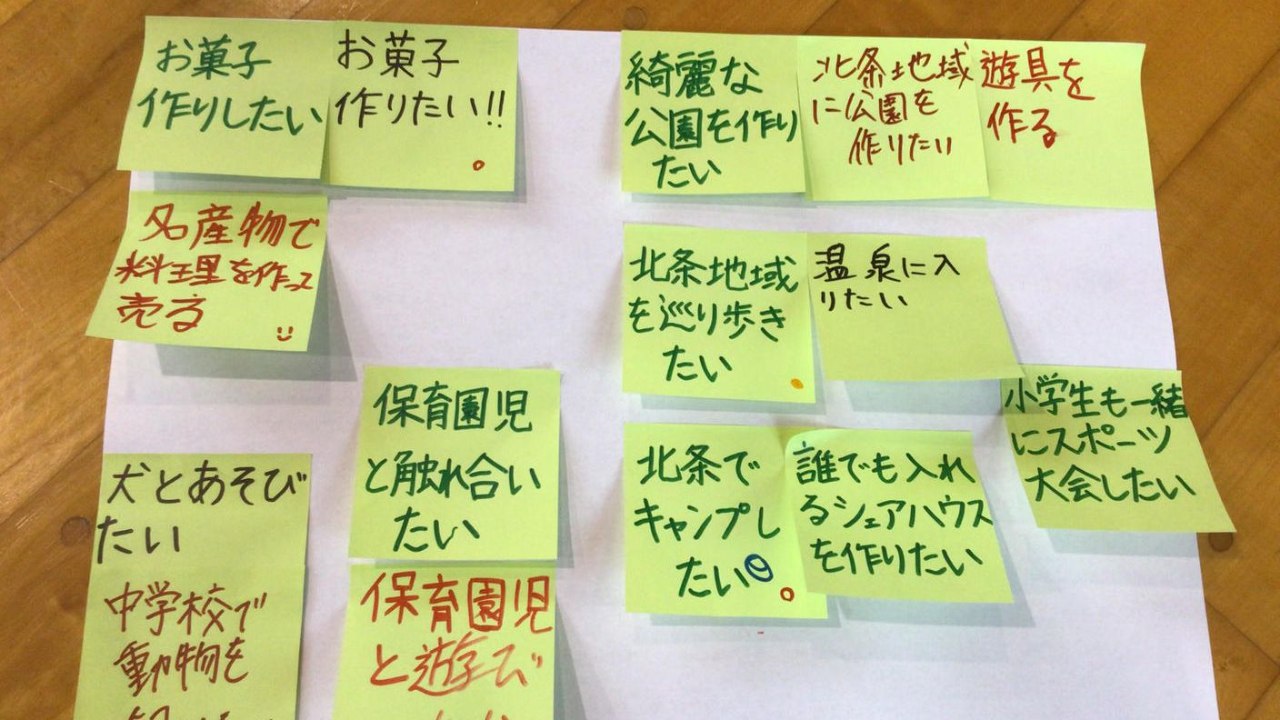 お菓子
作りしたい
お菓子
作りたい!!
名産物で
料理を作って
売る
綺麗な
公園を作り
たい
北条地域
に公園を
作りたい
遊具を
作る
北条地域
を巡り歩き
たい
温泉に入
りたい
保育園児
と触れ合い
たい
北条で
キャンプし
たい
誰でも入れ
るシェアハウス
を作りたい
小学生も一緒
にスポーツ
大会したい
犬とあそび
たい
中学校で
動物を
保育園児
と遊び